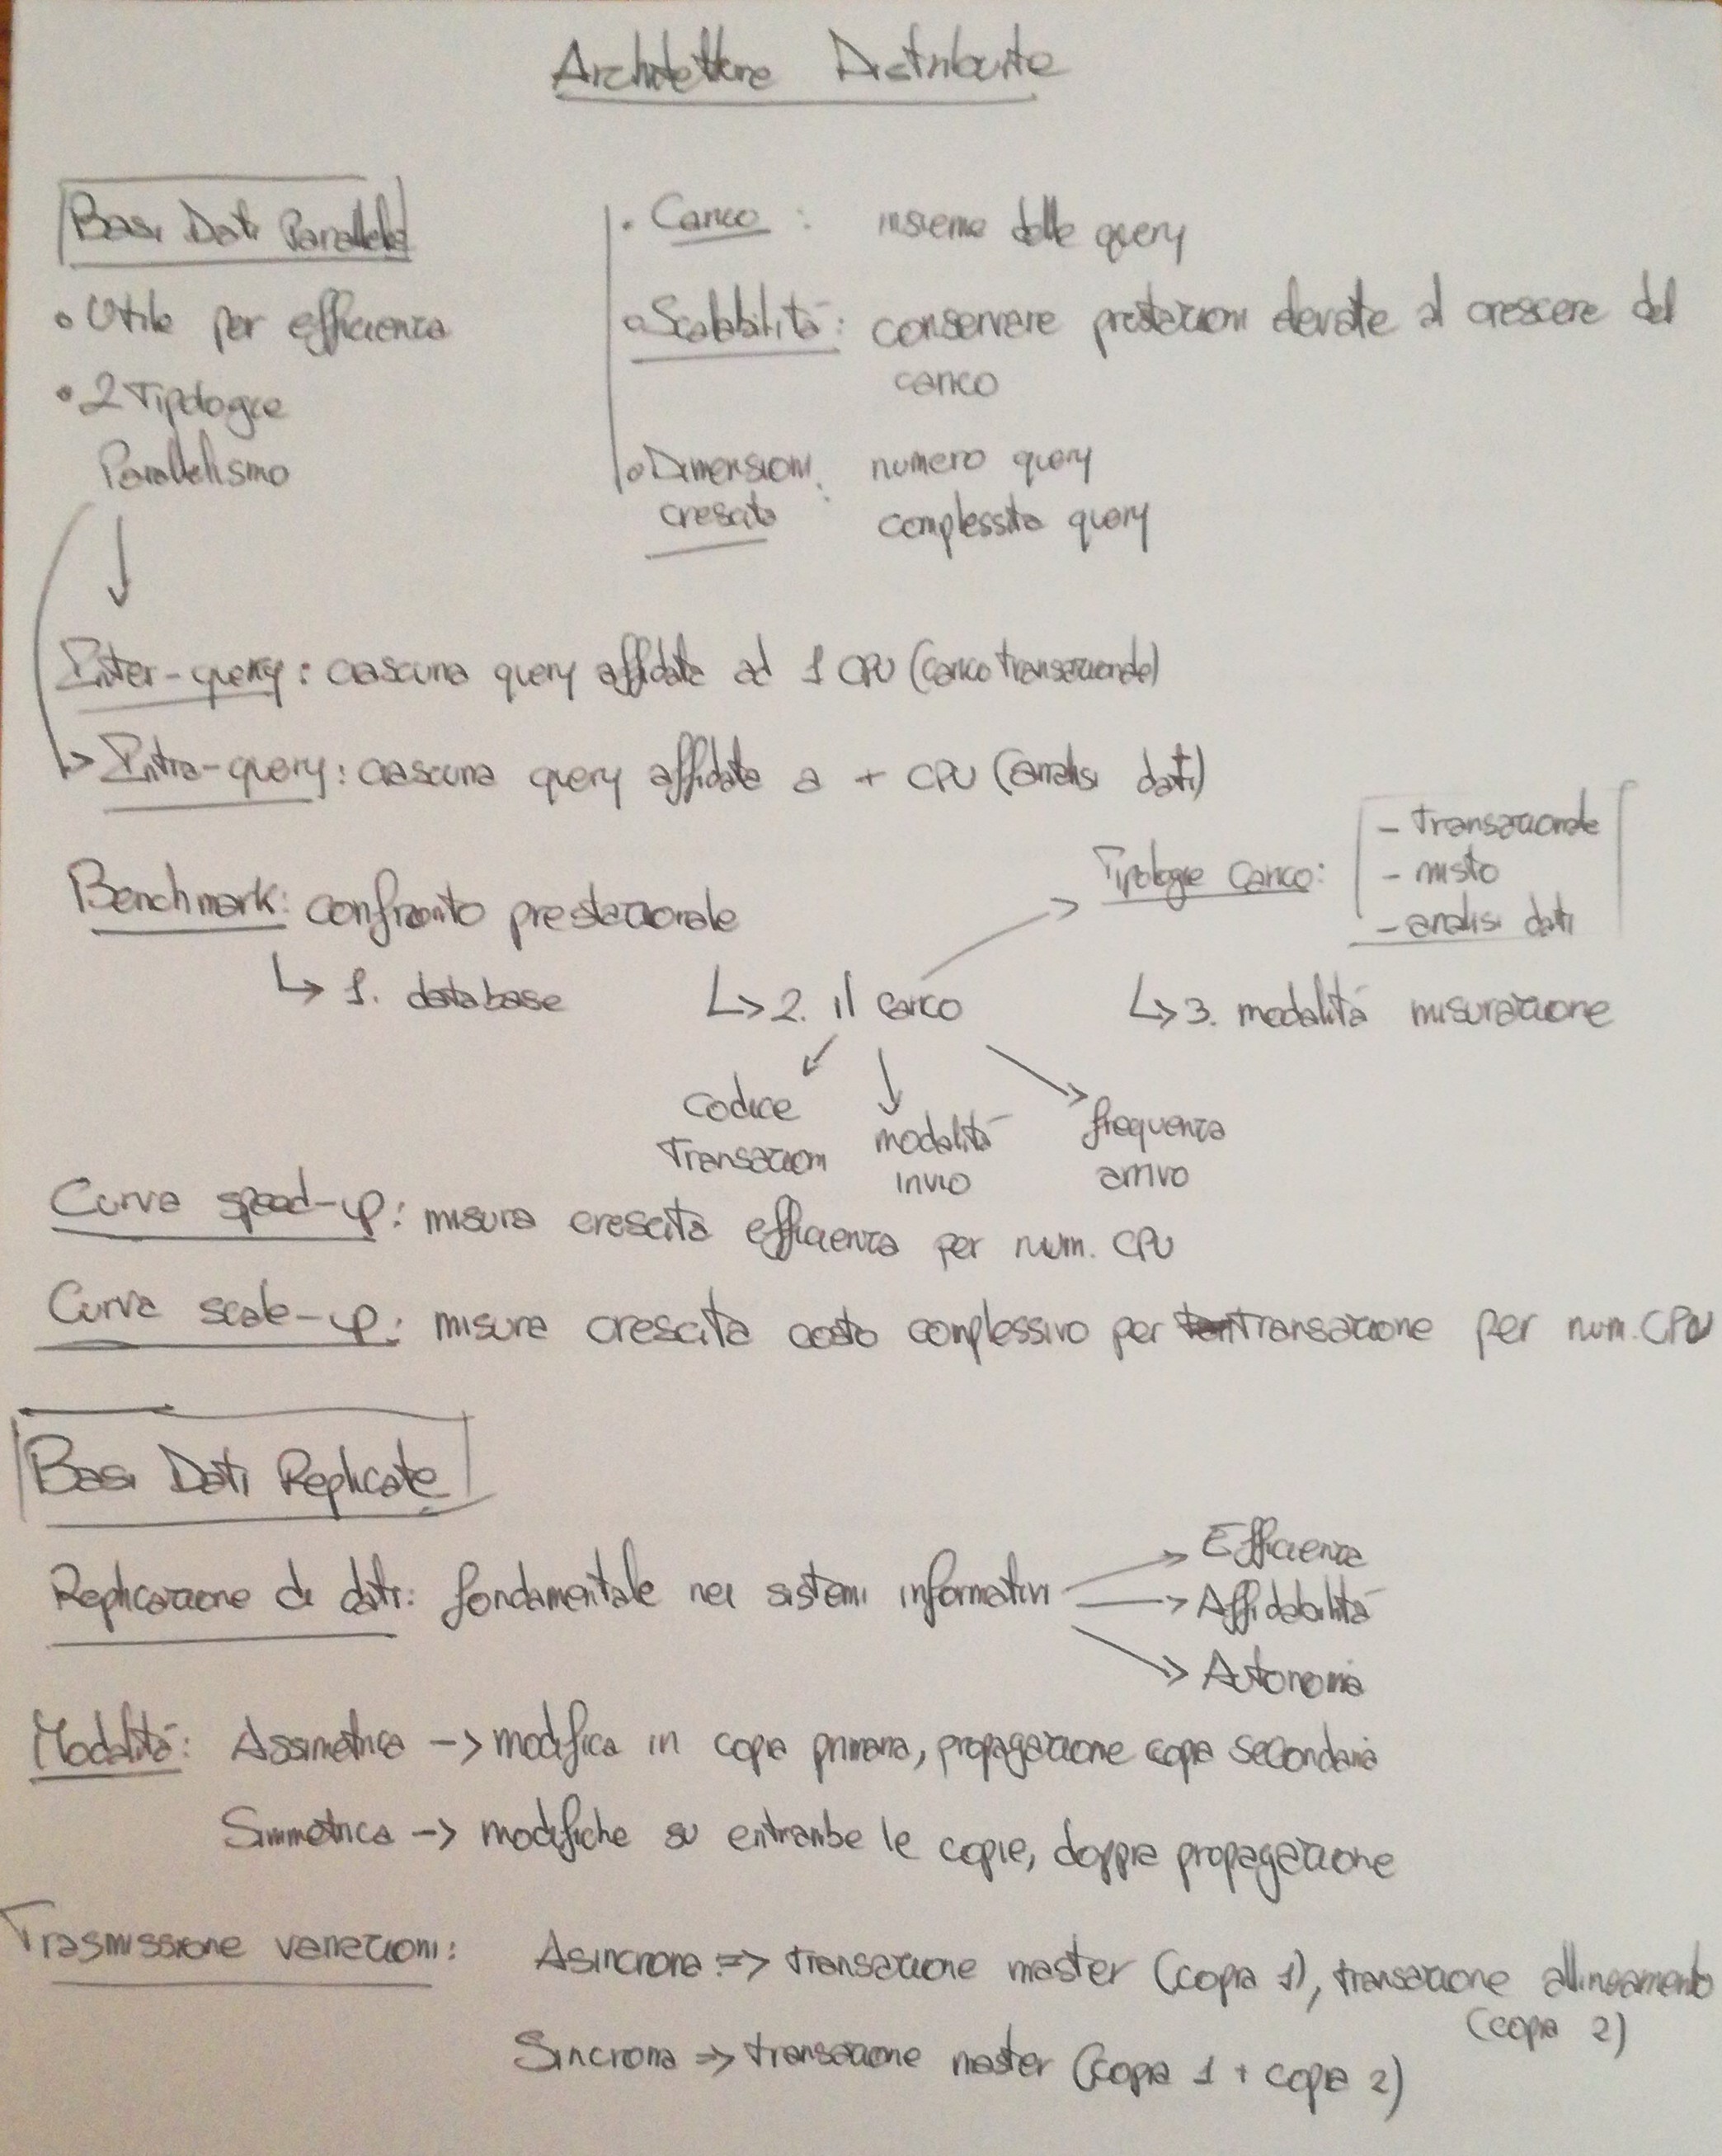 Architetture Distribuite
Basi Dati Parallele
• Utile per efficienza
• 2 Tipologie
Parallelismo
• Carico : insieme delle query
• Scalabilità : conservare prestazioni elevate al crescere del
carico
• Dimensioni : numero query
crescita complessità query
Inter-query : ciascuna query affidata ad 1 CPU (carico transazionale)
Intra-query : ciascuna query affidata a + CPU (analisi dati)
Benchmark : confronto prestazionale
Tipologie Carico :
- transazionale
- misto
- analisi dati
1. database
2. il carico
3. modalità misurazione
Codice
Transazioni
modalità
invio
frequenza
arrivo
Curva speed-up : misura crescita efficienza per num. CPU
Curva scale-up : misura crescita costo complessivo per transazione per num. CPU
Basi Dati Replicate
Replicazione di dati : fondamentale nei sistemi informativi
Efficienza
Affidabilità
Autonomia
Modalità : Assimetrica -> modifica in copia primaria, propagazione copia secondaria
Simmetrica -> modifiche su entrambe le copie, doppia propagazione
Trasmissione variazioni : Asincrona => transazione master (copia 1), transazione allineamento
(copia 2)
Sincrona => transazione master (copia 1 + copia 2)